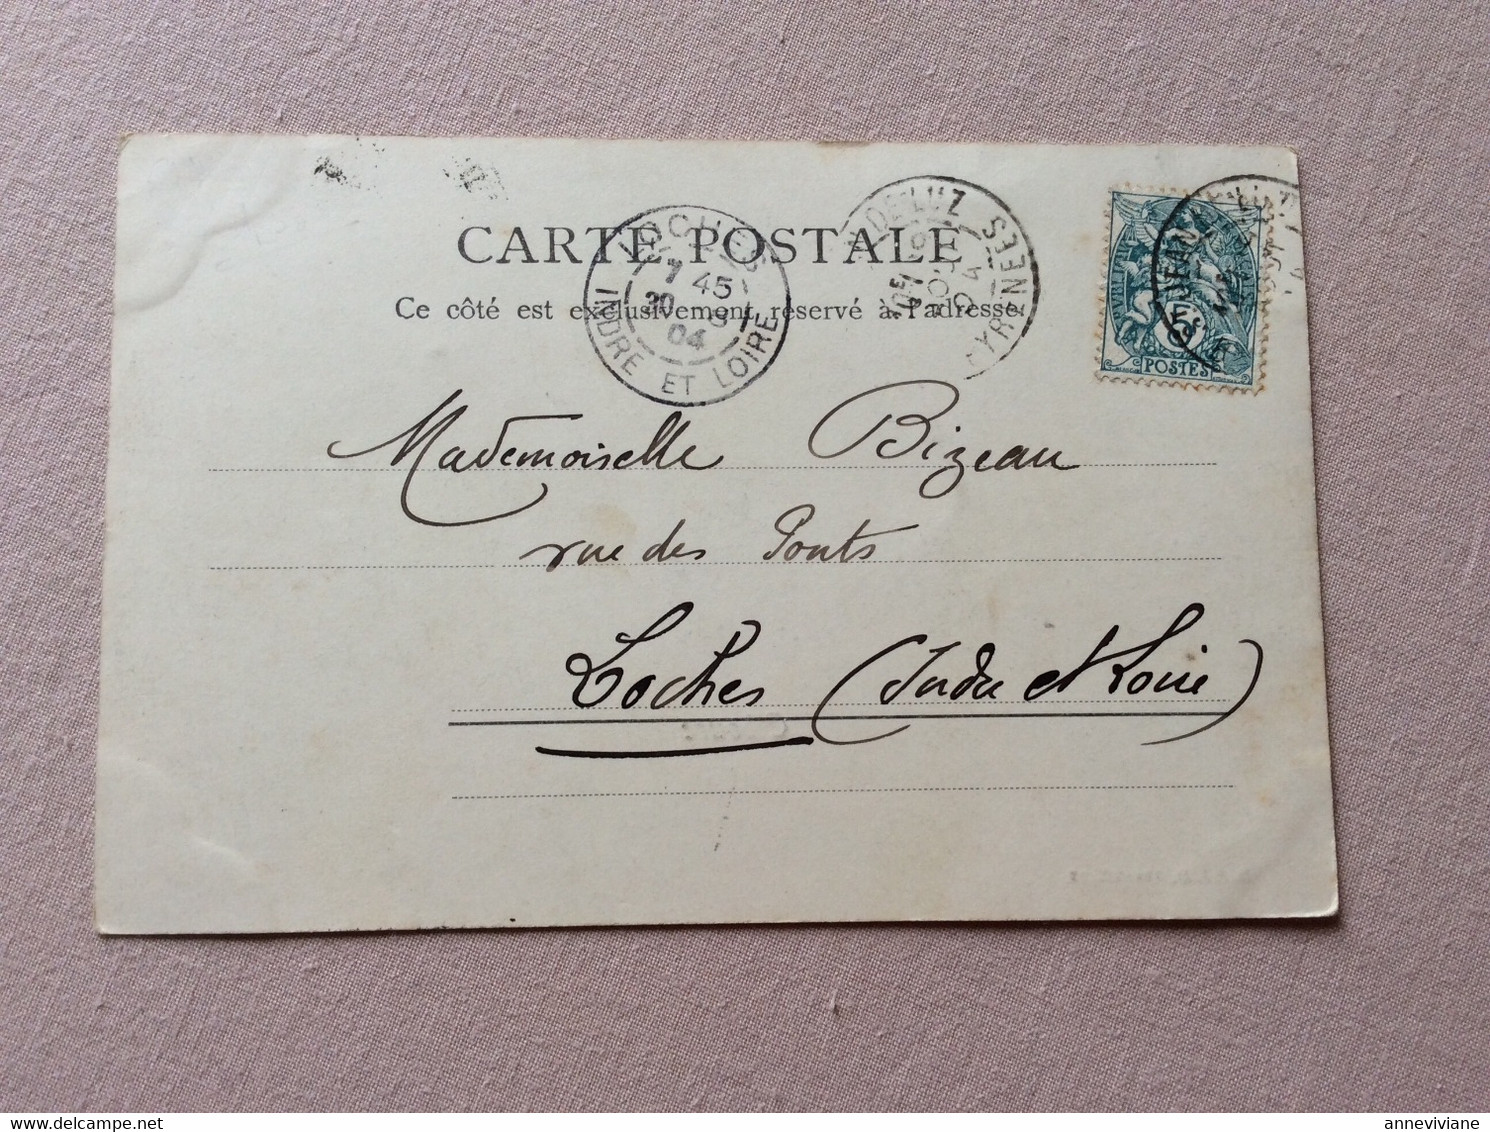 CARTE POSTALE
Ce côté est exclusivement réservé à l'adresse
LOCHES
7 45
30 8
04
INDRE ET LOIRE
DE LUZ
PYRENEES
JEAN
5c
POSTES
Mademoiselle Bizeau
rue des Ponts
Loches (Indre et Loire)
anneviviane